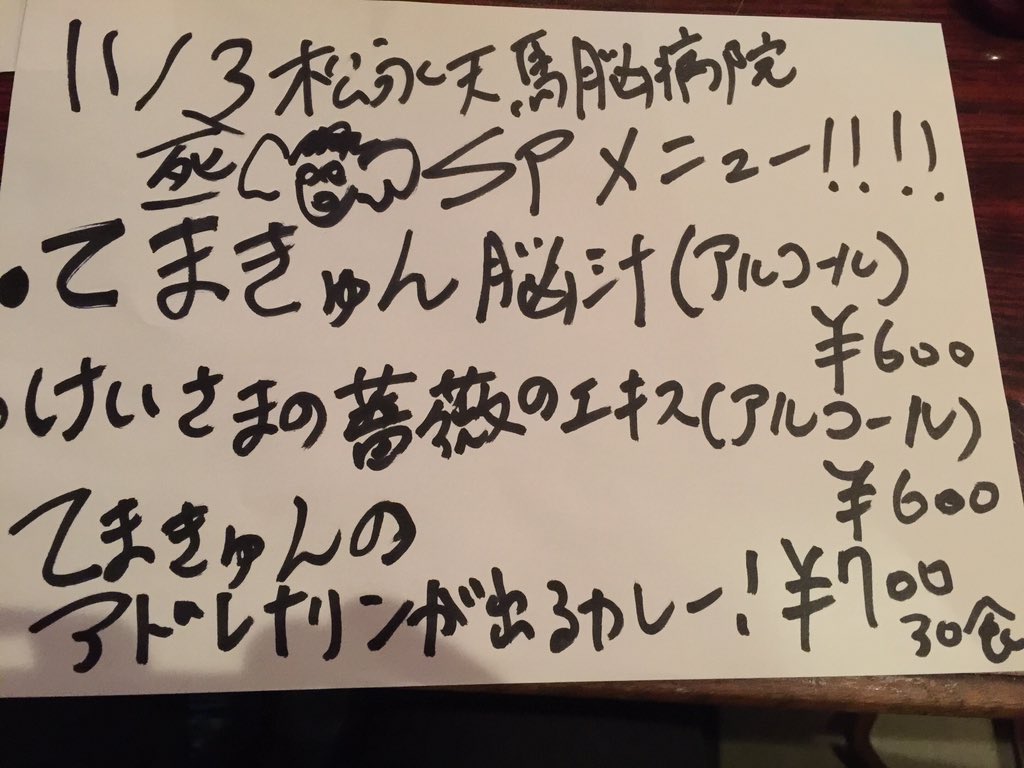 11/3 松永天馬脳病院
死 SPメニュー!!!!
・てまきゅん脳汁(アルコール)
¥600
・けいさまの薔薇のエキス(アルコール)
¥600
てまきゅんの
アドレナリンが出るカレー! ¥700
30食